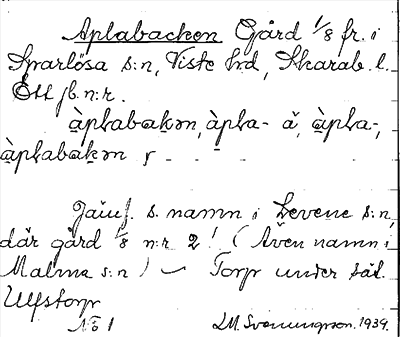 Aplabacken Gård 1/8 fr. i
Sparlösa s:n, Viste hd, Skarab. l.
Ett jb. n:r.
àplabakən, àpla- ǎ, àpla-,
àplabakən
Jämf. s. namn i Levene s:n,
där gård 1/8 n:r 2! (Även namn i
Malma s:n) Torp under
Ulfstorp
No 1 D.M. Svenungsson. 1939.